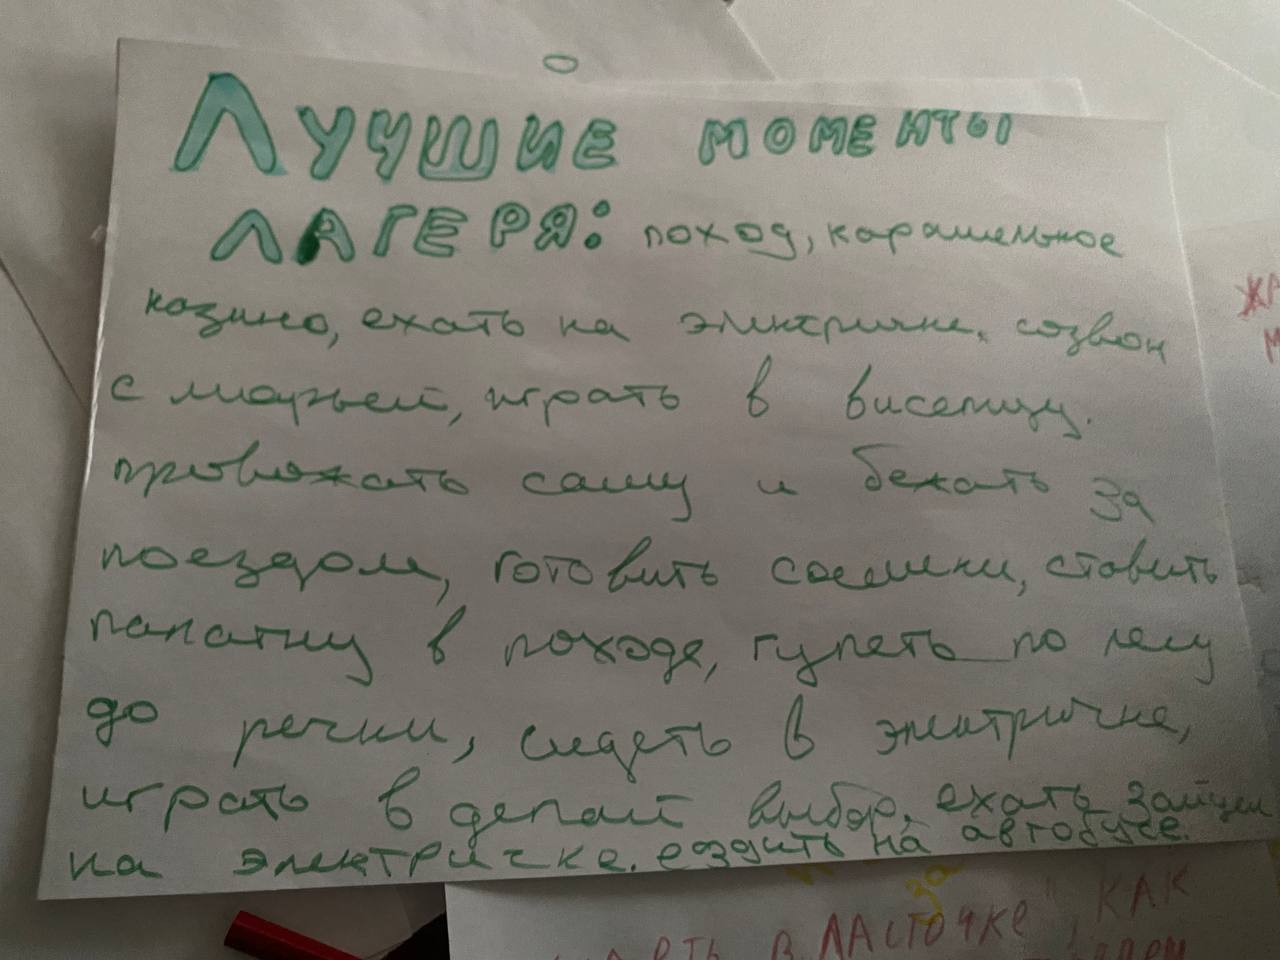 Лучшие моменты
лагеря: поход, карамельное
казино, ехать на электричке, созвон
с марьей, играть в виселицу.
провожать сашу и бежать за
поездом, готовить сосиски, ставить
палатку в походе, гулять по лесу
до речки, сидеть в электричке,
играть в делай выбор, ехать зайцем
на электричке. ездить на автобусе.
ЖА
М
ЗА
В ЛАСТОЧКЕ, КАК